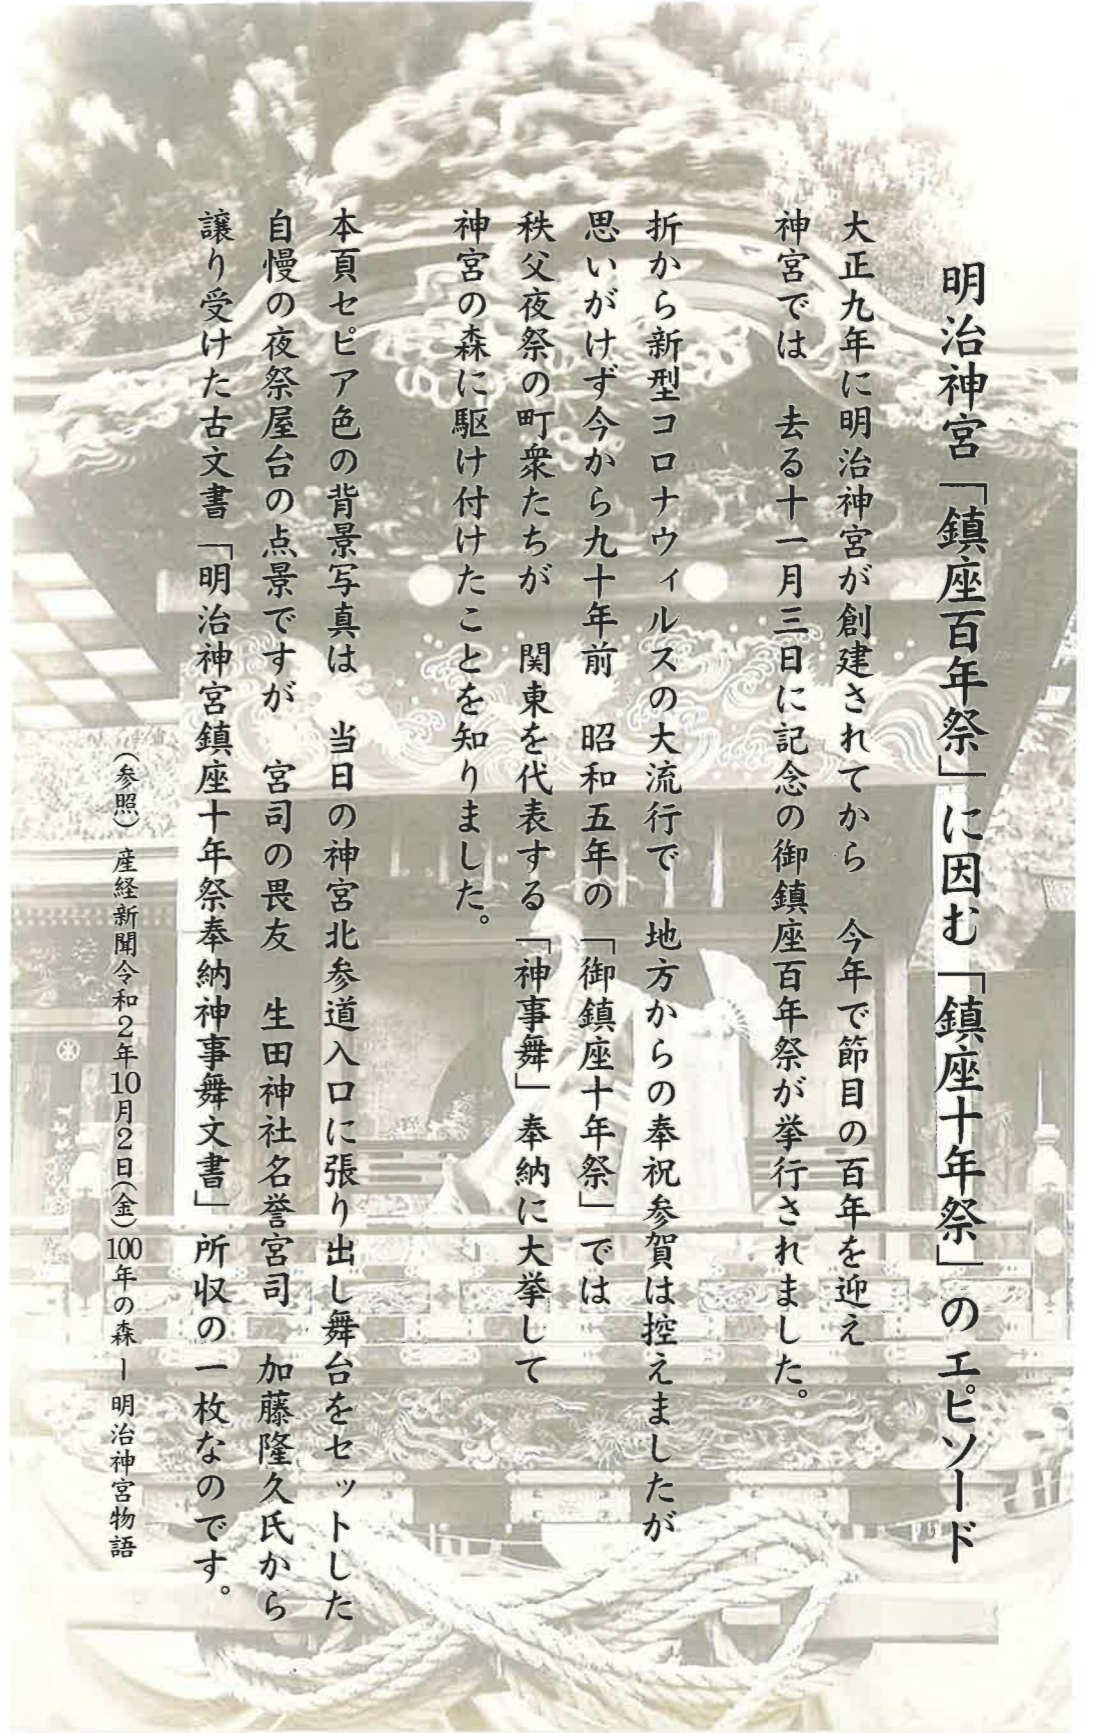 明治神宮「鎮座百年祭」に因む「鎮座十年祭」のエピソード
大正九年に明治神宮が創建されてから　今年で節目の百年を迎え
神宮では　去る十一月三日に記念の御鎮座百年祭が挙行されました。
折から新型コロナウィルスの大流行で　地方からの奉祝参賀は控えましたが
思いがけず今から九十年前　昭和五年の「御鎮座十年祭」では
秩父夜祭の町衆たちが　関東を代表する「神事舞」奉納に大挙して
神宮の森に駆け付けたことを知りました。
本頁セピア色の背景写真は　当日の神宮北参道入口に張り出し舞台をセットした
自慢の夜祭屋台の点景ですが　宮司の畏友　生田神社名誉宮司　加藤隆久氏から
譲り受けた古文書「明治神宮鎮座十年祭奉納神事舞文書」所収の一枚なのです。
（参照）産経新聞令和2年10月2日（金）100年の森 ー 明治神宮物語